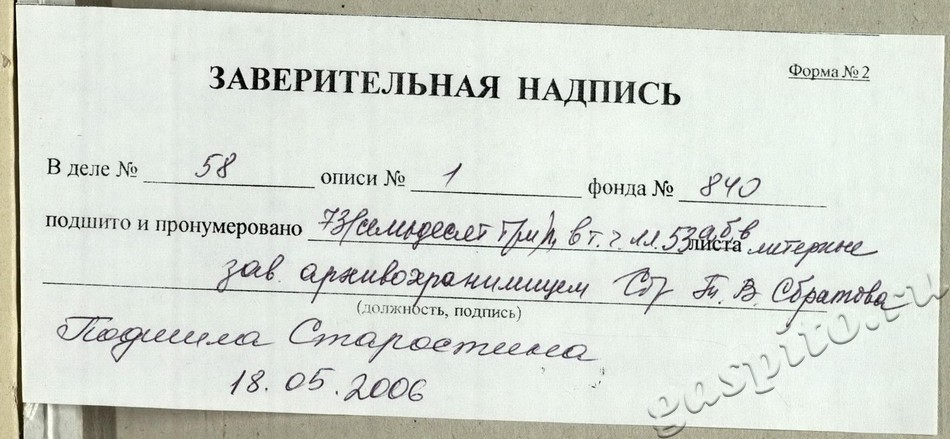 Форма № 2
ЗАВЕРИТЕЛЬНАЯ НАДПИСЬ
В деле № 58 описи № 1 фонда № 840
подшито и пронумеровано 73(семьдесят три)л, в т.ч. лл. 53а,б,в листа литерные
зав. архивохранилищем В. Сбратова
(должность, подпись)
Подшила Старостина
18.05.2006
gaspito.ru